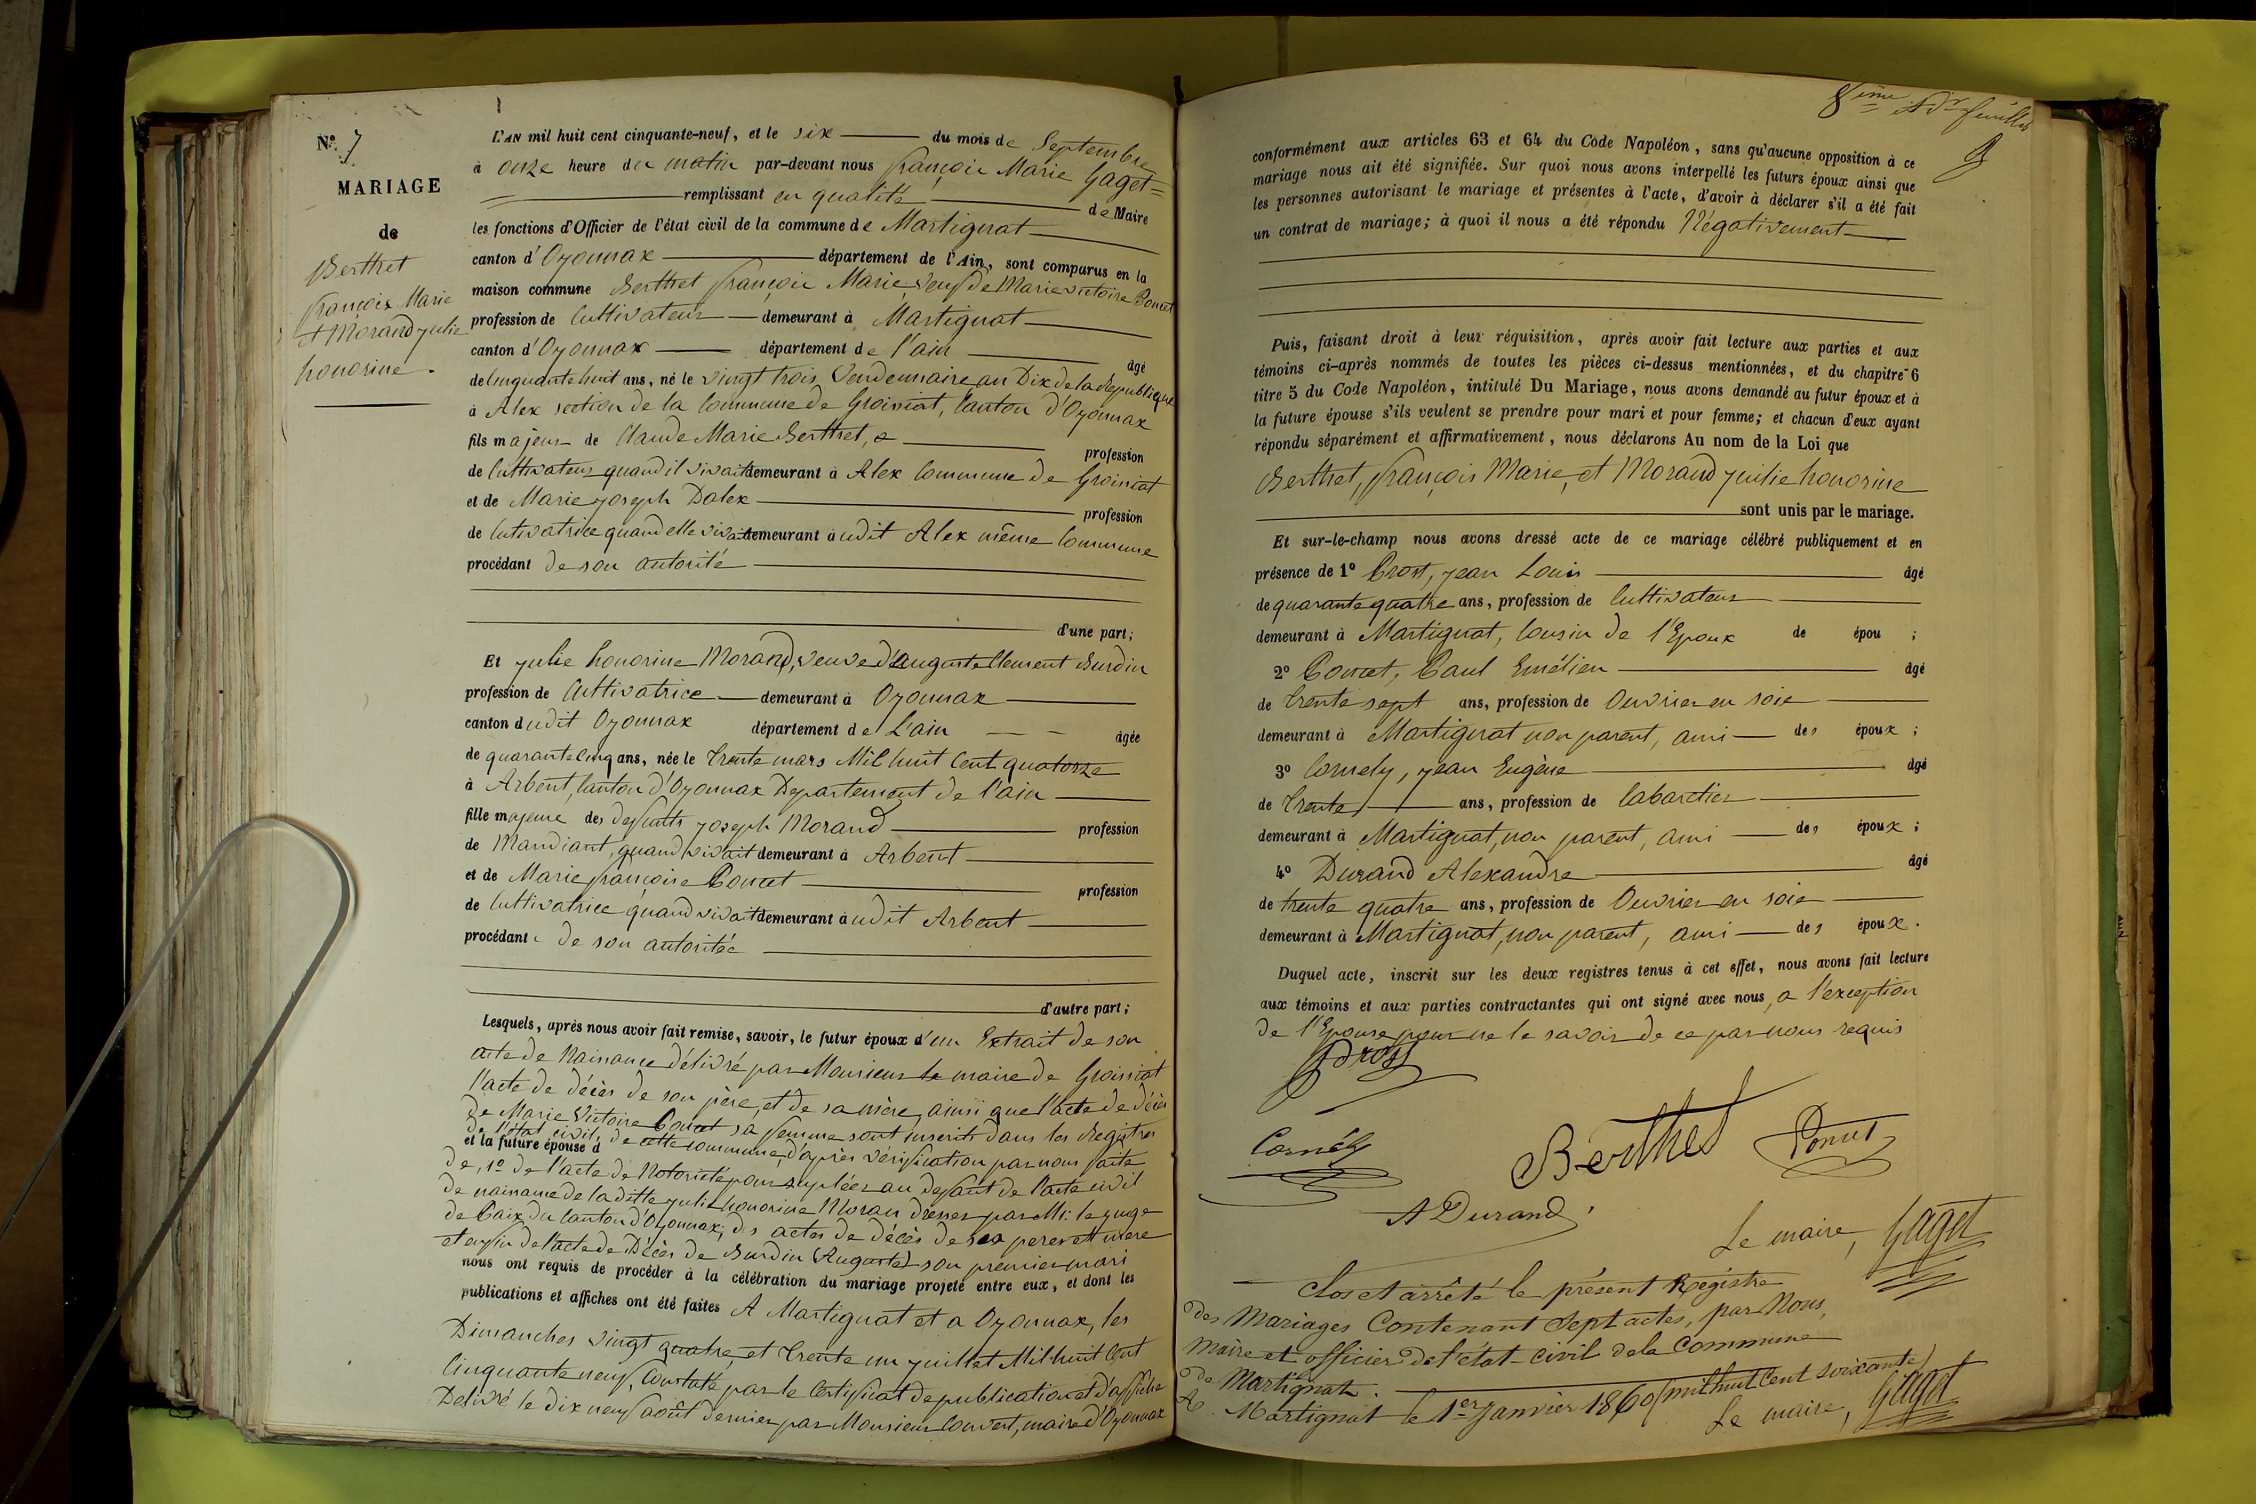 N° 7
MARIAGE
de
Berthet
françois Marie
et Morand julie
honorine.
L'AN mil huit cent cinquante-neuf, et le six du mois de Septembre
à onze heure du matin par-devant nous françois Marie Gaget
remplissant en qualité de Maire
les fonctions d'Officier de l'état civil de la commune de Martignat
canton d'Oyonnax département de l'Ain, sont comparus en la
maison commune Berthet françois Marie, veuf de Marie victoire Poncet
profession de Cultivateur demeurant à Martignat
canton d'Oyonnax département de l'ain âgé
de Cinquante huit ans, né le vingt trois Vendemiaire an Dix de la Republique
à Alex section de la Commune de Groissiat, Canton d'Oyonnax
fils majeur de Claude Marie Berthet, profession
de Cultivateur quand il vivait demeurant à Alex Commune de Groissiat
et de Marie joseph Dalex profession
de Cutivatrice quand elle vivait demeurant à udit Alex même Commune
procédant de son autorité
d'une part;
Et julie honorine Morand, veuve d'auguste Clement Burdin
profession de Cultivatrice demeurant à Oyonnax
canton dudit Oyonnax département de L'ain âgée
de quarante Cinq ans, née le trente mars Mil huit Cent quatorze
à Arbent, Canton d'Oyonnax Departement de l'ain
fille majeure des deffunts joseph Morand profession
de Mandiant, quand vivait demeurant à Arbent
et de Marie françoise Poncet profession
de Cultivatrice quand vivait demeurant à udit Arbent
procédant de son autoritée
d'autre part;
Lesquels, après nous avoir fait remise, savoir, le futur époux d'un Extrait de son
acte de Naissance délivré par Monsieur le maire de Groissiat
l'acte de décès de son père, et de sa mère, ainsi que l'acte de décès
de Marie Victoire Poncet sa femme sont inscrits dans les Registres
de l'état civil, de cette commune, d'après vérification par nous faite
et la future épouse d
de, 1° de l'acte de Notoriété pour supléer au deffaut de l'acte civil
de naissance de la ditte julie honorine Moran dresser par Mr le juge
de Paix du Canton d'Oyonnax; des actes de décès de ses peres et mere
et enfin de l'acte de Décès de Burdin (Auguste) son premier mari
nous ont requis de procéder à la célébration du mariage projeté entre eux, et dont les
publications et affiches ont été faites A Martignat et a Oyonnax, les
Dimanches vingt quatre et trente un juillet Mil huit Cent
Cinquante neuf, Constaté par le Certificat de publication et d'affiche
Delivré le dix neuf août dernier par Monsieur Convert, maire d'Oyonnax
8ème et dr feuillet
conformément aux articles 63 et 64 du Code Napoléon, sans qu'aucune opposition à ce
mariage nous ait été signifiée. Sur quoi nous avons interpellé les futurs époux ainsi que
les personnes autorisant le mariage et présentes à l'acte, d'avoir à déclarer s'il a été fait
un contrat de mariage; à quoi il nous a été répondu Négativement
Puis, faisant droit à leur réquisition, après avoir fait lecture aux parties et aux
témoins ci-après nommés de toutes les pièces ci-dessus mentionnées, et du chapitre 6
titre 5 du Code Napoléon, intitulé Du Mariage, nous avons demandé au futur époux et à
la future épouse s'ils veulent se prendre pour mari et pour femme; et chacun d'eux ayant
répondu séparément et affirmativement, nous déclarons Au nom de la Loi que
Berthet, françois Marie, et Morand julie honorine
sont unis par le mariage.
Et sur-le-champ nous avons dressé acte de ce mariage célébré publiquement et en
présence de 1° Crost, jean Louis âgé
de quarante quatre ans, profession de Cultivateur
demeurant à Martignat, Cousin de l'Epoux de épou ;
2° Poncet, Paul Emélien âgé
de trente sept ans, profession de Ouvrier en soie
demeurant à Martignat non parent, ami des époux ;
3° Cornely, jean Eugène âgé
de trente ans, profession de Cabaretier
demeurant à Martignat, non parent, ami des époux ;
4° Durand Alexandre âgé
de trente quatre ans, profession de Ouvrier en soie
demeurant à Martignat, non parent, ami des époux.
Duquel acte, inscrit sur les deux registres tenus à cet effet, nous avons fait lecture
aux témoins et aux parties contractantes qui ont signé avec nous, a l'exception
de l'Epouse pour ne le savoir de ce par nous requis
Cornély
Berthet
Poncet
A Durand
Le maire, Gaget
Clos et arrêté le présent Registre
des Mariages Contenant Sept actes, par Nous,
Maire et officier de l'état-civil de la Commune
de Martignat.
A Martignat le 1er Janvier 1860 (mil huit Cent soixante)
Le maire, Gaget